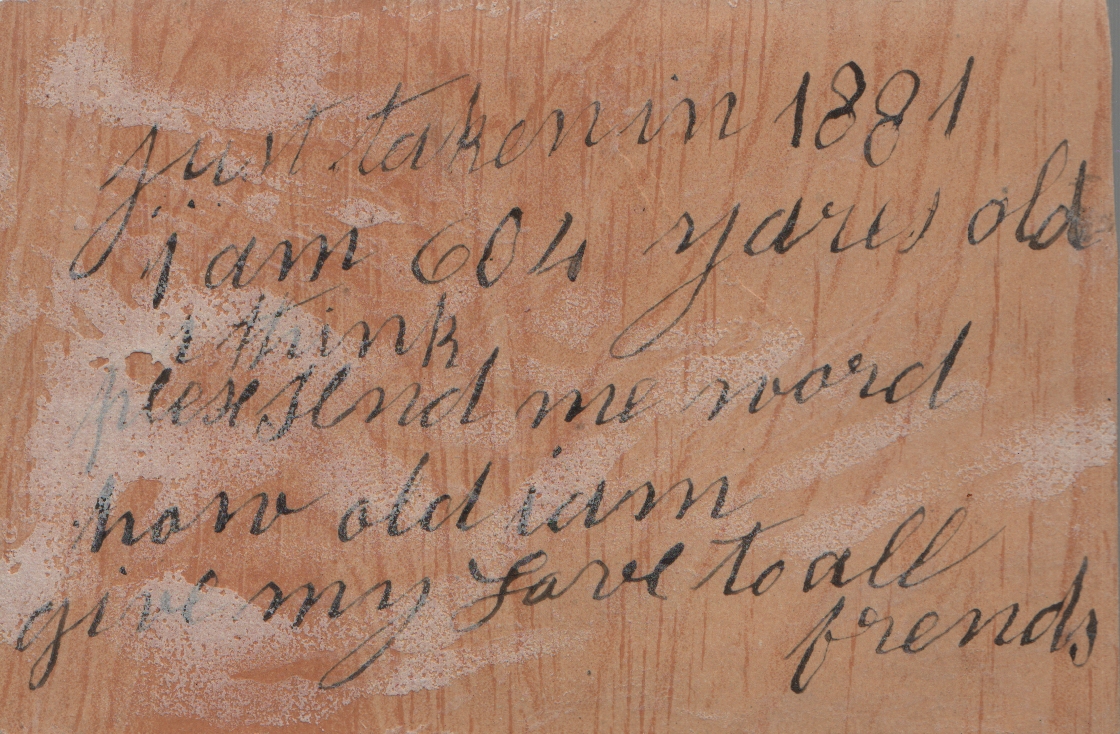 just taken in 1881
i am 604 yares old
i think
plese send me word
how old iam
give my Love to all
frends